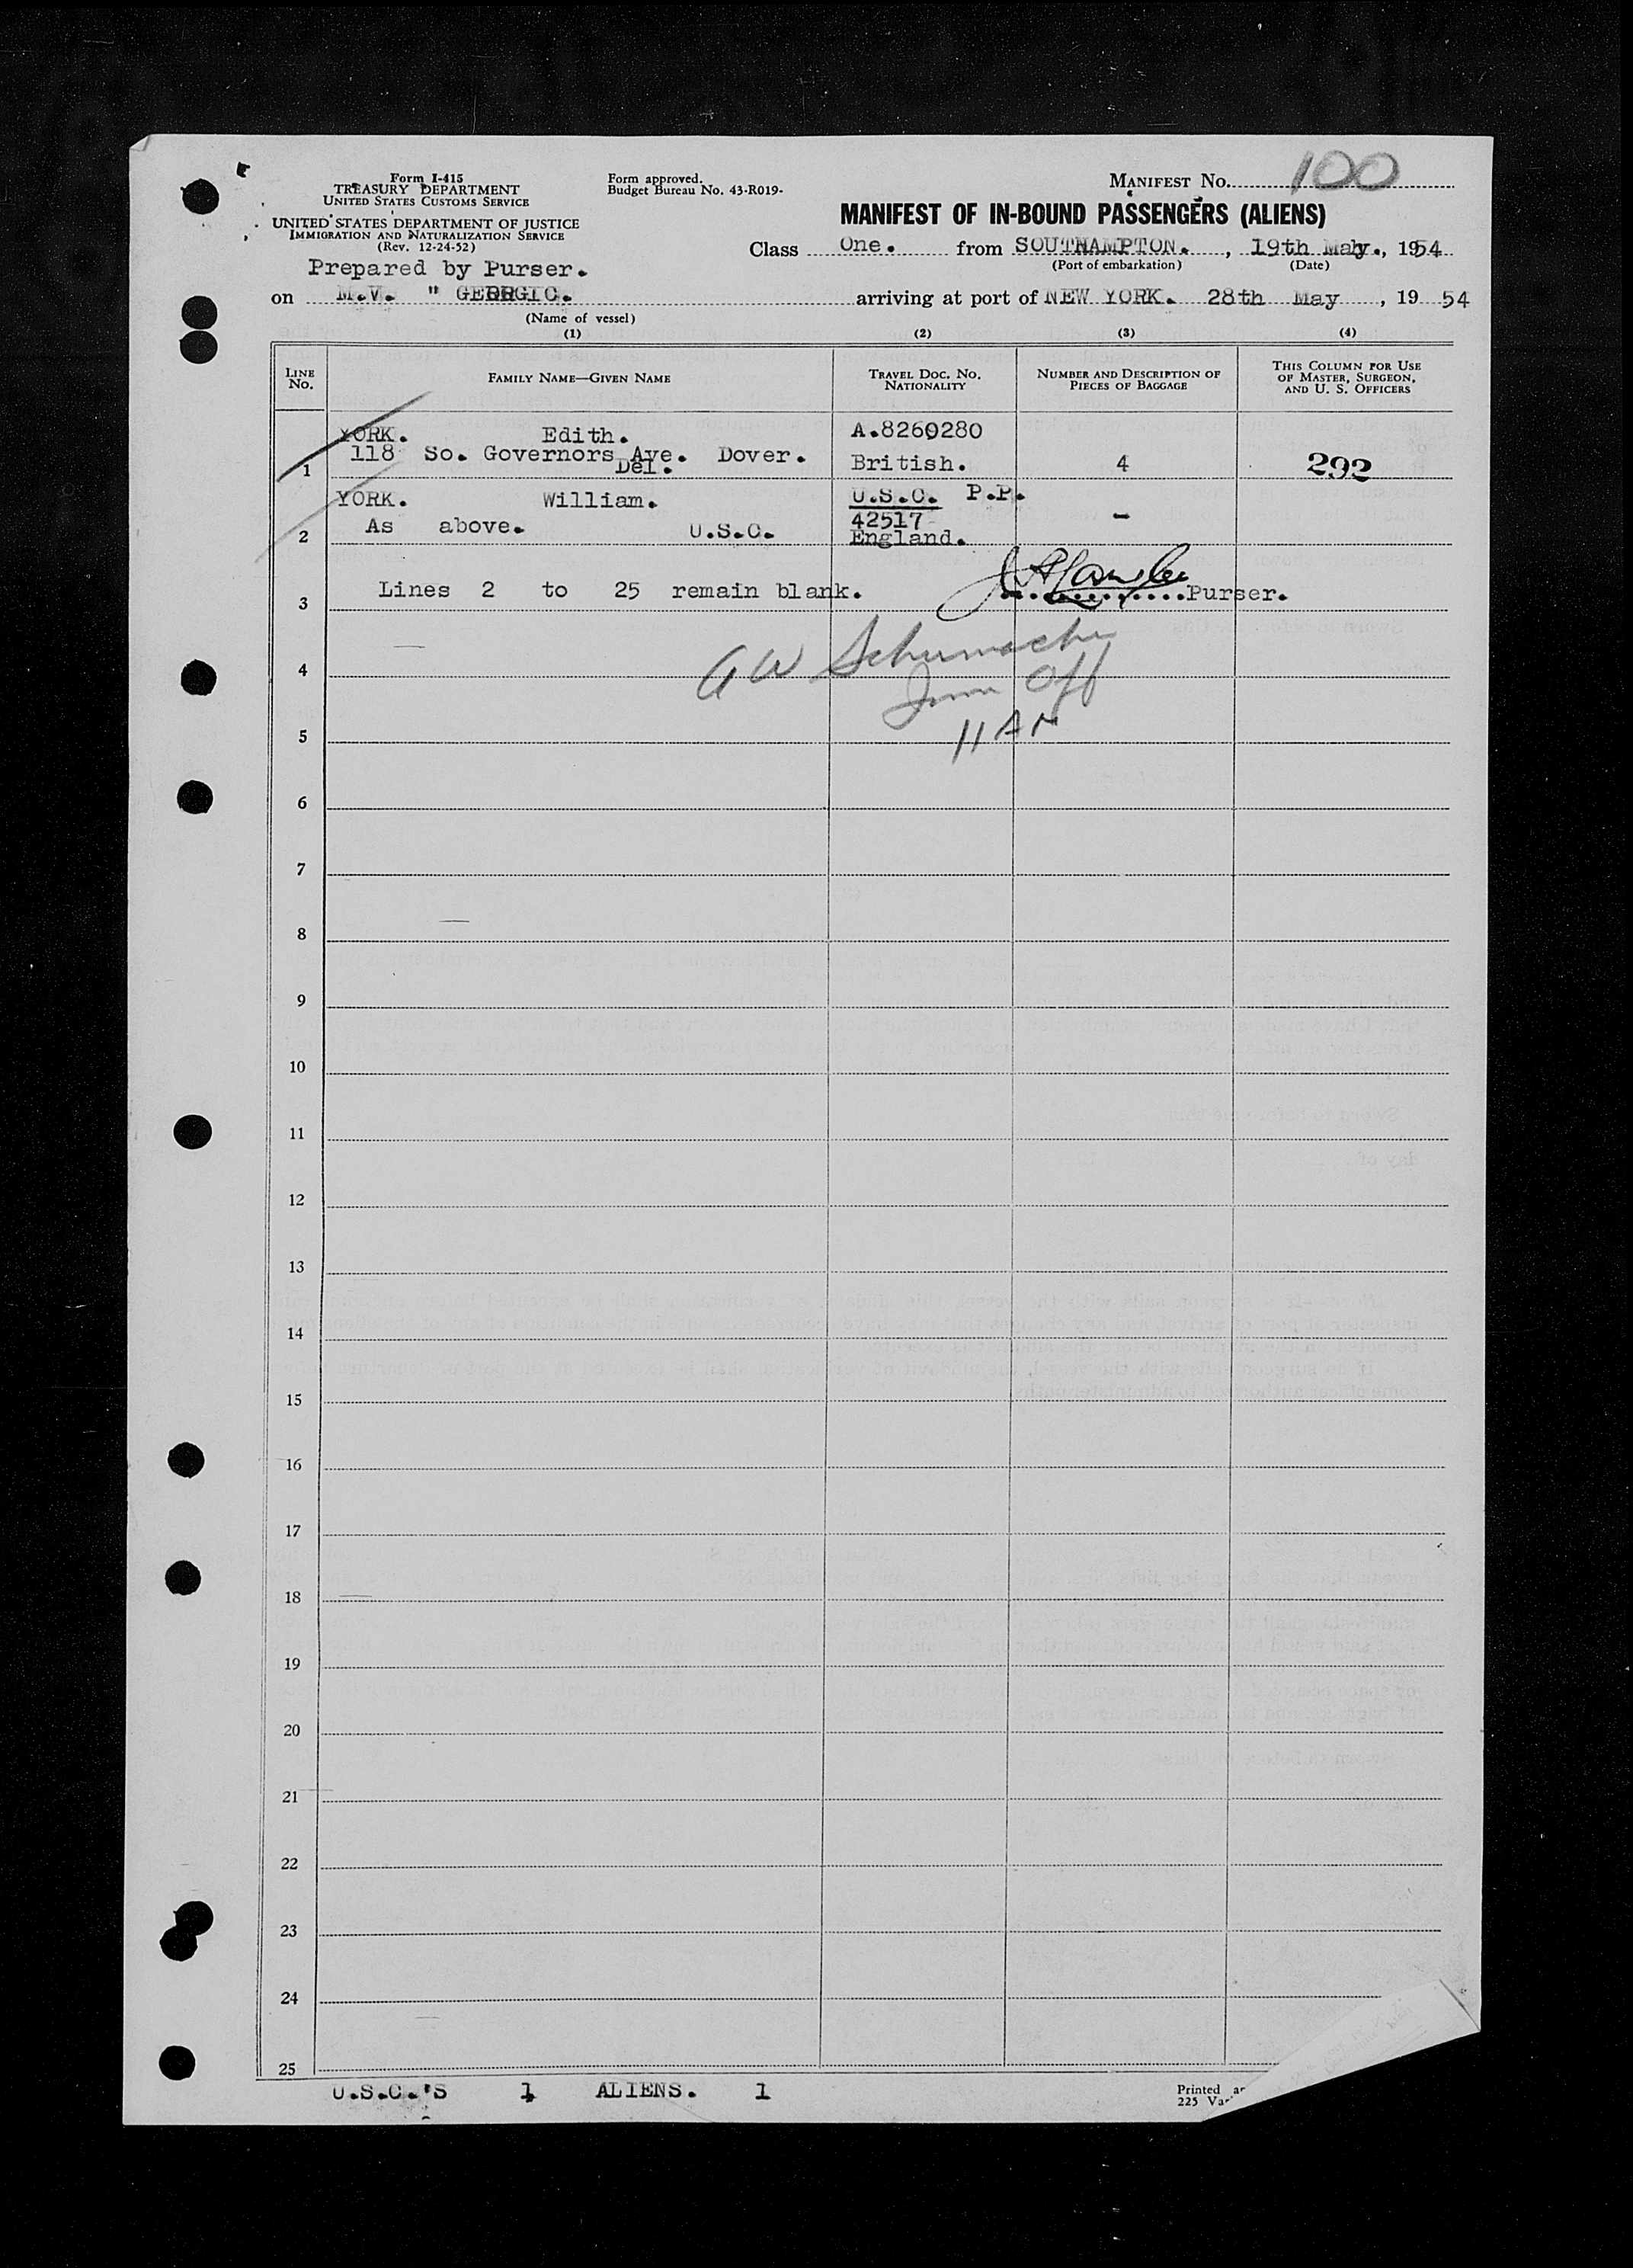 Form I-415
TREASURY DEPARTMENT
UNITED STATES CUSTOMS SERVICE
UNITED STATES DEPARTMENT OF JUSTICE
IMMIGRATION AND NATURALIZATION SERVICE
(Rev. 12-24-52)
Form approved.
Budget Bureau No. 43-R019-
MANIFEST No. 100
MANIFEST OF IN-BOUND PASSENGERS (ALIENS)
Class One. from SOUTHAMPTON. , 19th May., 1954
(Port of embarkation) (Date)
Prepared by Purser.
on M.V. " GEORGIC. arriving at port of NEW YORK. 28th May , 19 54
(Name of vessel)
(1) (2) (3) (4)
LINE No. FAMILY NAME—GIVEN NAME TRAVEL DOC. No. NATIONALITY NUMBER AND DESCRIPTION OF PIECES OF BAGGAGE THIS COLUMN FOR USE OF MASTER, SURGEON, AND U. S. OFFICERS
YORK. Edith. A.8260280
118 So. Governors Ave. Dover.
1 Del. British. 4 292
YORK. William. U.S.C. P.P.
As above. U.S.C. 42517 -
2 England.
Lines 2 to 25 remain blank. Purser.
3
A W Schumacher
4
Imm Off
11 AM
5
6
7
8
9
10
11
12
13
14
15
16
17
18
19
20
21
22
23
24
25
U.S.C.'S 1 ALIENS. 1
Printed
225